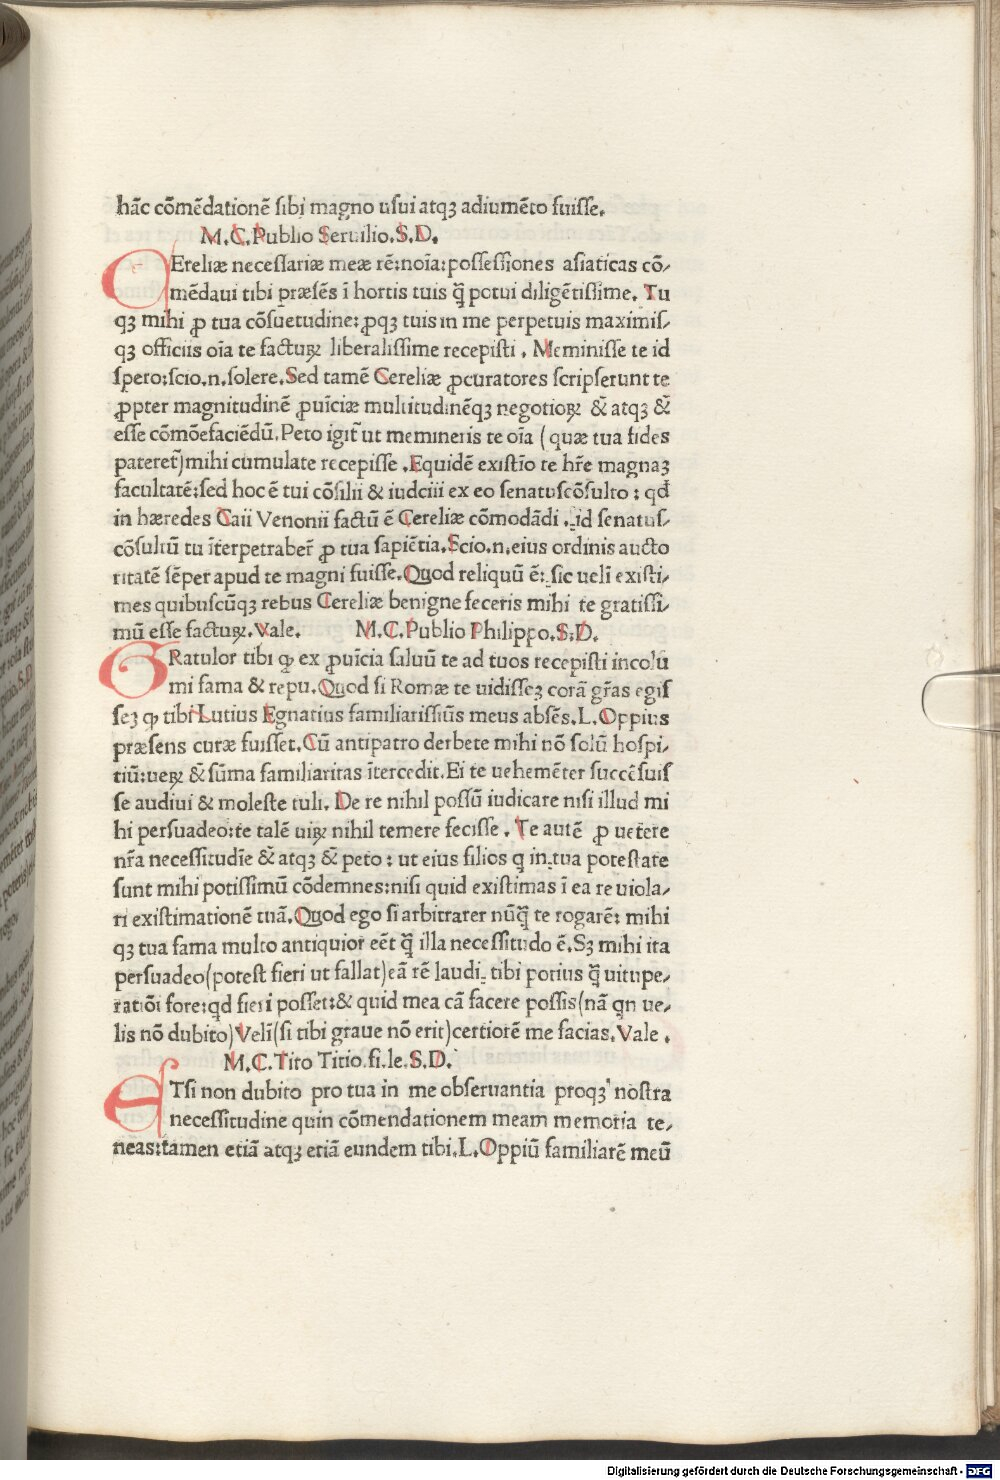 hāc cōmēdationē sibi magno usui atqꝫ adiumēto fuisse.
M.C.Publio Seruilio.S.D.
CEreliæ necessariæ meæ rē:noīa:possessiones asiaticas cō/
mēdaui tibi præsēs ī hortis tuis q̄̄ potui diligētissime. Tu
qꝫ mihi ꝓ tua cōsuetudine:ꝓqꝫ tuis in me perpetuis maximis/
qꝫ officiis oīa te factuꝝ liberalissime recepisti . Meminisse te id
spero:scio.n.solere.Sed tamē Cereliæ ꝓcuratores scripserunt te
ꝓpter magnitudinē ꝓuīciæ multitudinēqꝫ negotioꝝ &̄ atqꝫ &̄
esse cōmōefaciēdū.Peto igit᷑ ut memineris te oīa (quæ tua fides
pateret᷑)mihi cumulate recepisse .Equidē existīo te hr̄e magnaꝫ
facultatē:sed hoc ē tui cōsilii & iudciii ex eo senatuscōsulto : qd̄
in hæredes Caii Venonii factū ē Cereliæ cōmodādi . id senatus/
cōsultū tu īterpetraber᷑ ꝓ tua sapiētia.Scio.n.eius ordinis aucto
ritatē sēper apud te magni fuisse.Quod reliquū ē: sic uelī existi/
mes quibuscūqꝫ rebus Cereliæ benigne feceris mihi te gratissi/
mū esse factuꝝ.Vale. M.C.Publio Philippo.S.D.
GRatulor tibi ꝙ ex ꝓuīcia saluū te ad tuos recepisti incolu
mi fama & repu.Quod si Romæ te uidisseꝫ corā gr̄as egis
seꝫ ꝙ tibi Lutius Egnatius familiarissiūs meus absēs.L.Oppius
præsens curæ fuisset.Cū antipatro derbete mihi nō solū hospi/
tiū:ueꝝ &̄ sūma familiaritas ītercedit.Ei te uehemēter succēsuis
se audiui & moleste tuli. De re nihil possū iudicare nisi illud mi
hi persuadeo:te talē uiꝝ nihil temere fecisse . Te autē ꝓ uetere
nr̄a necessitudīe &̄ atqꝫ &̄ peto : ut eius filios q̄ in tua potestate
sunt mihi potissimū cōdemnes:nisi quid existimas ī ea re uiola/
ri existimationē tuā.Quod ego si arbitrarer nūq̄̄ te rogarē: mihi
qꝫ tua fama multo antiquior eēt q̄̄ illa necessitudo ē.Sꝫ mihi ita
persuadeo(potest fieri ut fallat)eā rē laudi tibi potius q̄̄ uitupe/
ratiōi fore:qd̄ fieri posset:& quid mea cā facere possis(nā qn ue/
lis nō dubito)Velī(si tibi graue nō erit)certiorē me facias.Vale .
M.C.Tito Titio.fi.le.S.D.
ETsi non dubito pro tua in me obseruantia proqꝫ nostra
necessitudine quin cōmendationem meam memoria te/
neas:tamen etiā atqꝫ etiā eundem tibi.L.Oppiū familiarē meū
Digitalisierung gefördert durch die Deutsche Forschungsgemeinschaft - DFG